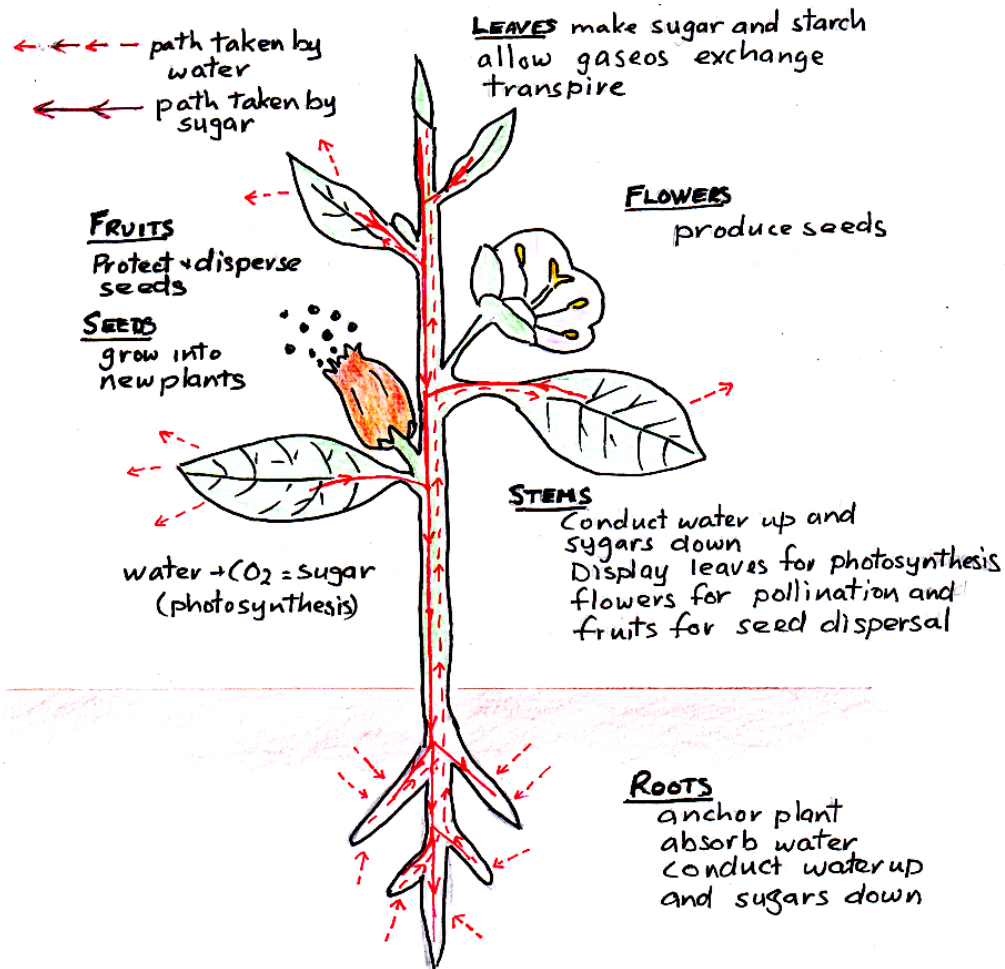 path taken by
water
path taken by
sugar
LEAVES make sugar and starch
allow gaseos exchange
transpire
FLOWERS
produce seeds
FRUITS
Protect + disperse
seeds
SEEDS
grow into
new plants
STEMS
Conduct water up and
sygars down
Display leaves for photosynthesis
flowers for pollination and
fruits for seed dispersal
water + CO2 = sugar
(photosynthesis)
ROOTS
anchor plant
absorb water
conduct water up
and sugars down